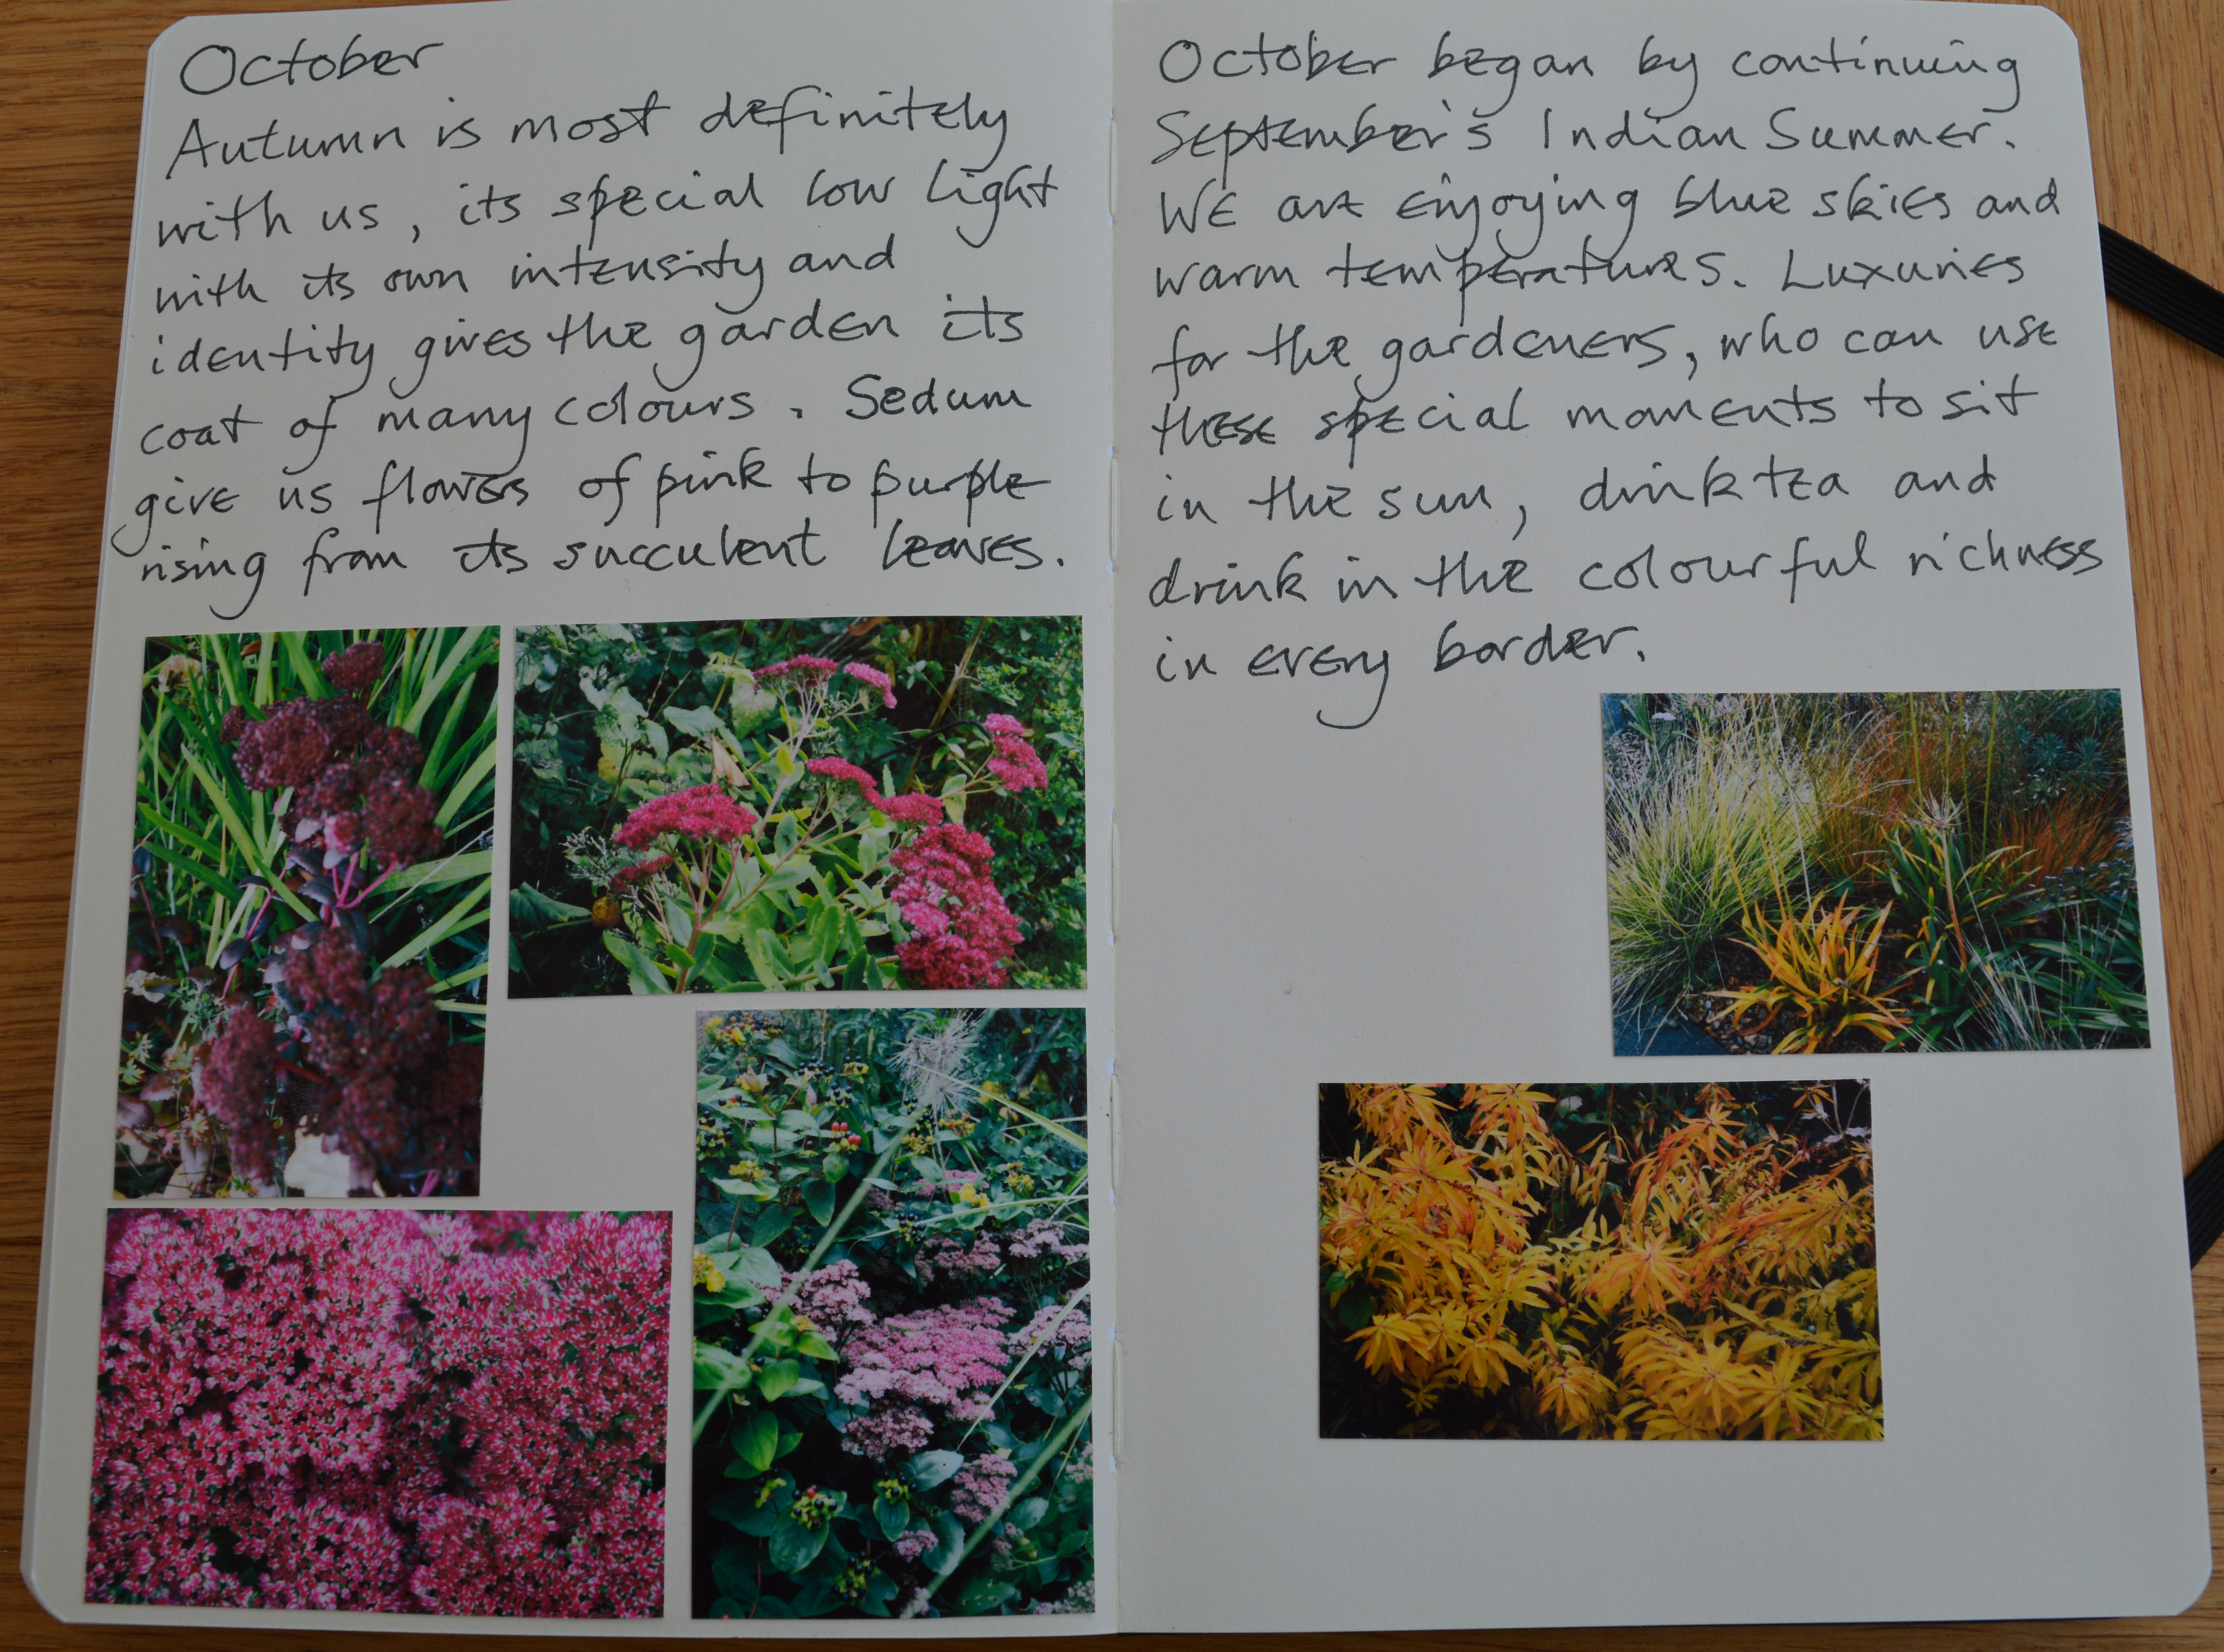 October
Autumn is most definitely
with us, its special low light
with its own intensity and
identity gives the garden its
coat of many colours. Sedum
give us flowers of pink to purple
rising from its succulent leaves.
October began by continuing
September's Indian Summer.
We are enjoying blue skies and
warm temperatures. Luxuries
for the gardeners, who can use
these special moments to sit
in the sun, drink tea and
drink in the colourful richness
in every border.